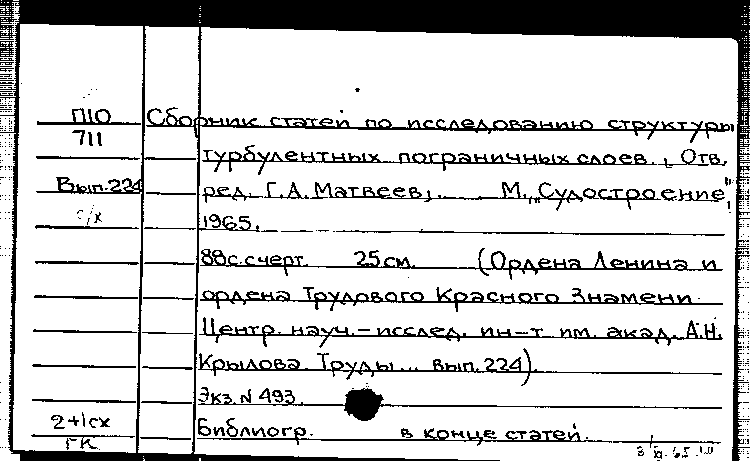 П10
711
Вып.224
с/х
Сборник статей по исследованию структуры
турбулентных пограничных слоев., Отв.
ред. Г.А. Матвеев,. М. „Судостроение",
1965.
88с.счерт. 25см. (Ордена Ленина и
ордена Трудового Красного Знамени
Центр. науч.-исслед. ин-т им. акад. А.Н.
Крылова. Труды... вып. 224).
Экз. N 493.
Библиогр. в конце статей.
2+1сх
ГК